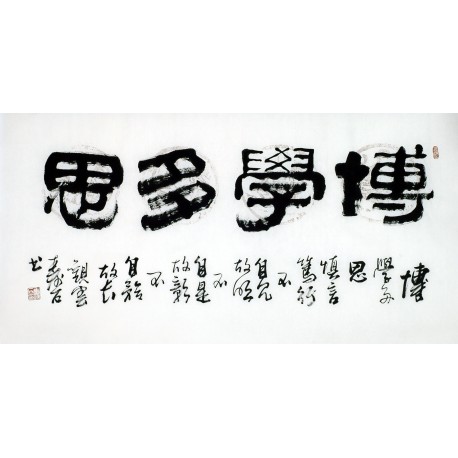 博學多思
博
學多
思
慎言
篤行
不
自見
故明
不
自是
故彰
不
自矜
故长
觀雲
书